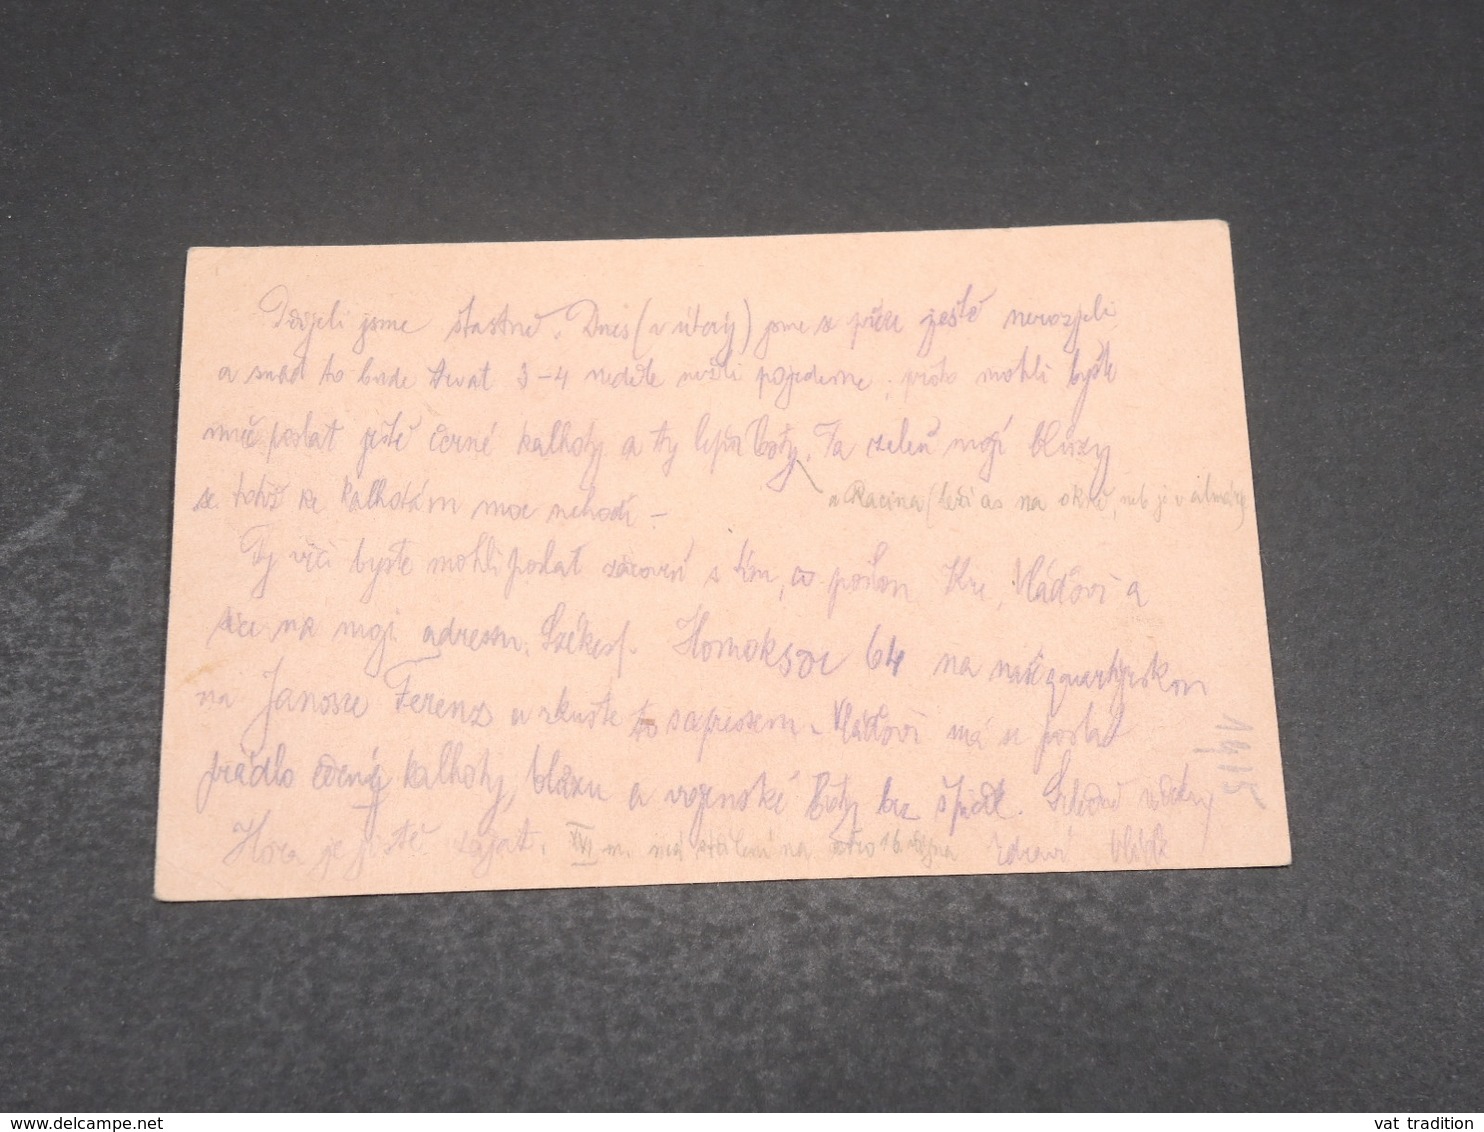 Dojeli jsme šťastně. Dnes (v úterý) jsme se přece ještě nerozjeli
a snad to bude trvat 3-4 neděle nežli pojedeme, proto mohli byste
mě poslat ještě černé kalhoty a ty lepší boty. Ta zeleň mojí blůzy
se totiž ke kalhotám moc nehodí –
a Racina (leží as na okně, neb je v almárce)
Ty věci byste mohli poslat zároveň s tím, co pošlou Vláďovi a
sice na moji adresu. Székesf. Homoksor 64 na
na Janosze Ferenz a zkuste to expressem. Vláďovi má se poslat
prádlo černé kalhoty, blůzu a vojenské boty bez špidl. Srdečně všechny
Hora je jistě zajat. XVI m. má na 16. října zdraví Vláďa
1915
vat tradition